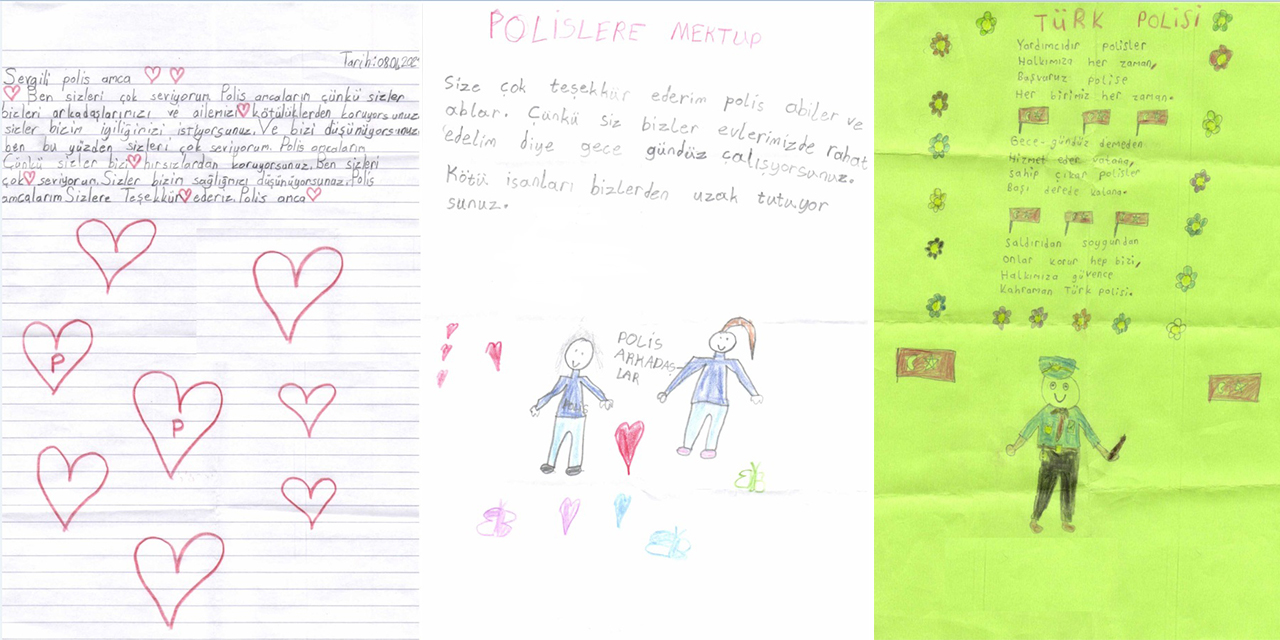 Tarih:08.04.202
Sevgili polis amca
Ben sizleri çok seviyorum Polis amcaların çünkü sizler
bizleri arkadaşlarımızı ve ailemizi kötülüklerden koruyorsunuz
sizler bizim iyiliğinizi istiyorsunuz. Ve bizi düşünüyorsunuz
ben bu yüzden sizleri çok seviyorum. Polis amcaların
Çünkü sizler bizi hırsızlardan koruyorsunuz. Ben sizleri
çok seviyorum. Sizler bizim sağlığımızı düşünüyorsunuz. Polis
amcalarım Sizlere Teşekkür ederiz. Polis amca
P
P
POLİSLERE MEKTUP
Size çok teşekkür ederim polis abiler ve
ablar. Çünkü siz bizler evlerimizde rahat
edelim diye gece gündüz çalışıyorsunuz.
Kötü isanları bizlerden uzak tutuyor
sunuz.
POLİS
ARKADAŞ-
LAR
POLİS
TÜRK POLİSİ
Yardımcıdır polisler
Halkımıza her zaman,
Başvuruz polise
Her birimiz her zaman.
Gece-gündüz demeden
Hizmet eder vatana,
Sahip çıkar polisler
Başı derede kalana.
Saldırıdan soygundan
Onlar korur hep bizi,
Halkımıza güvence
Kahraman Türk polisi.